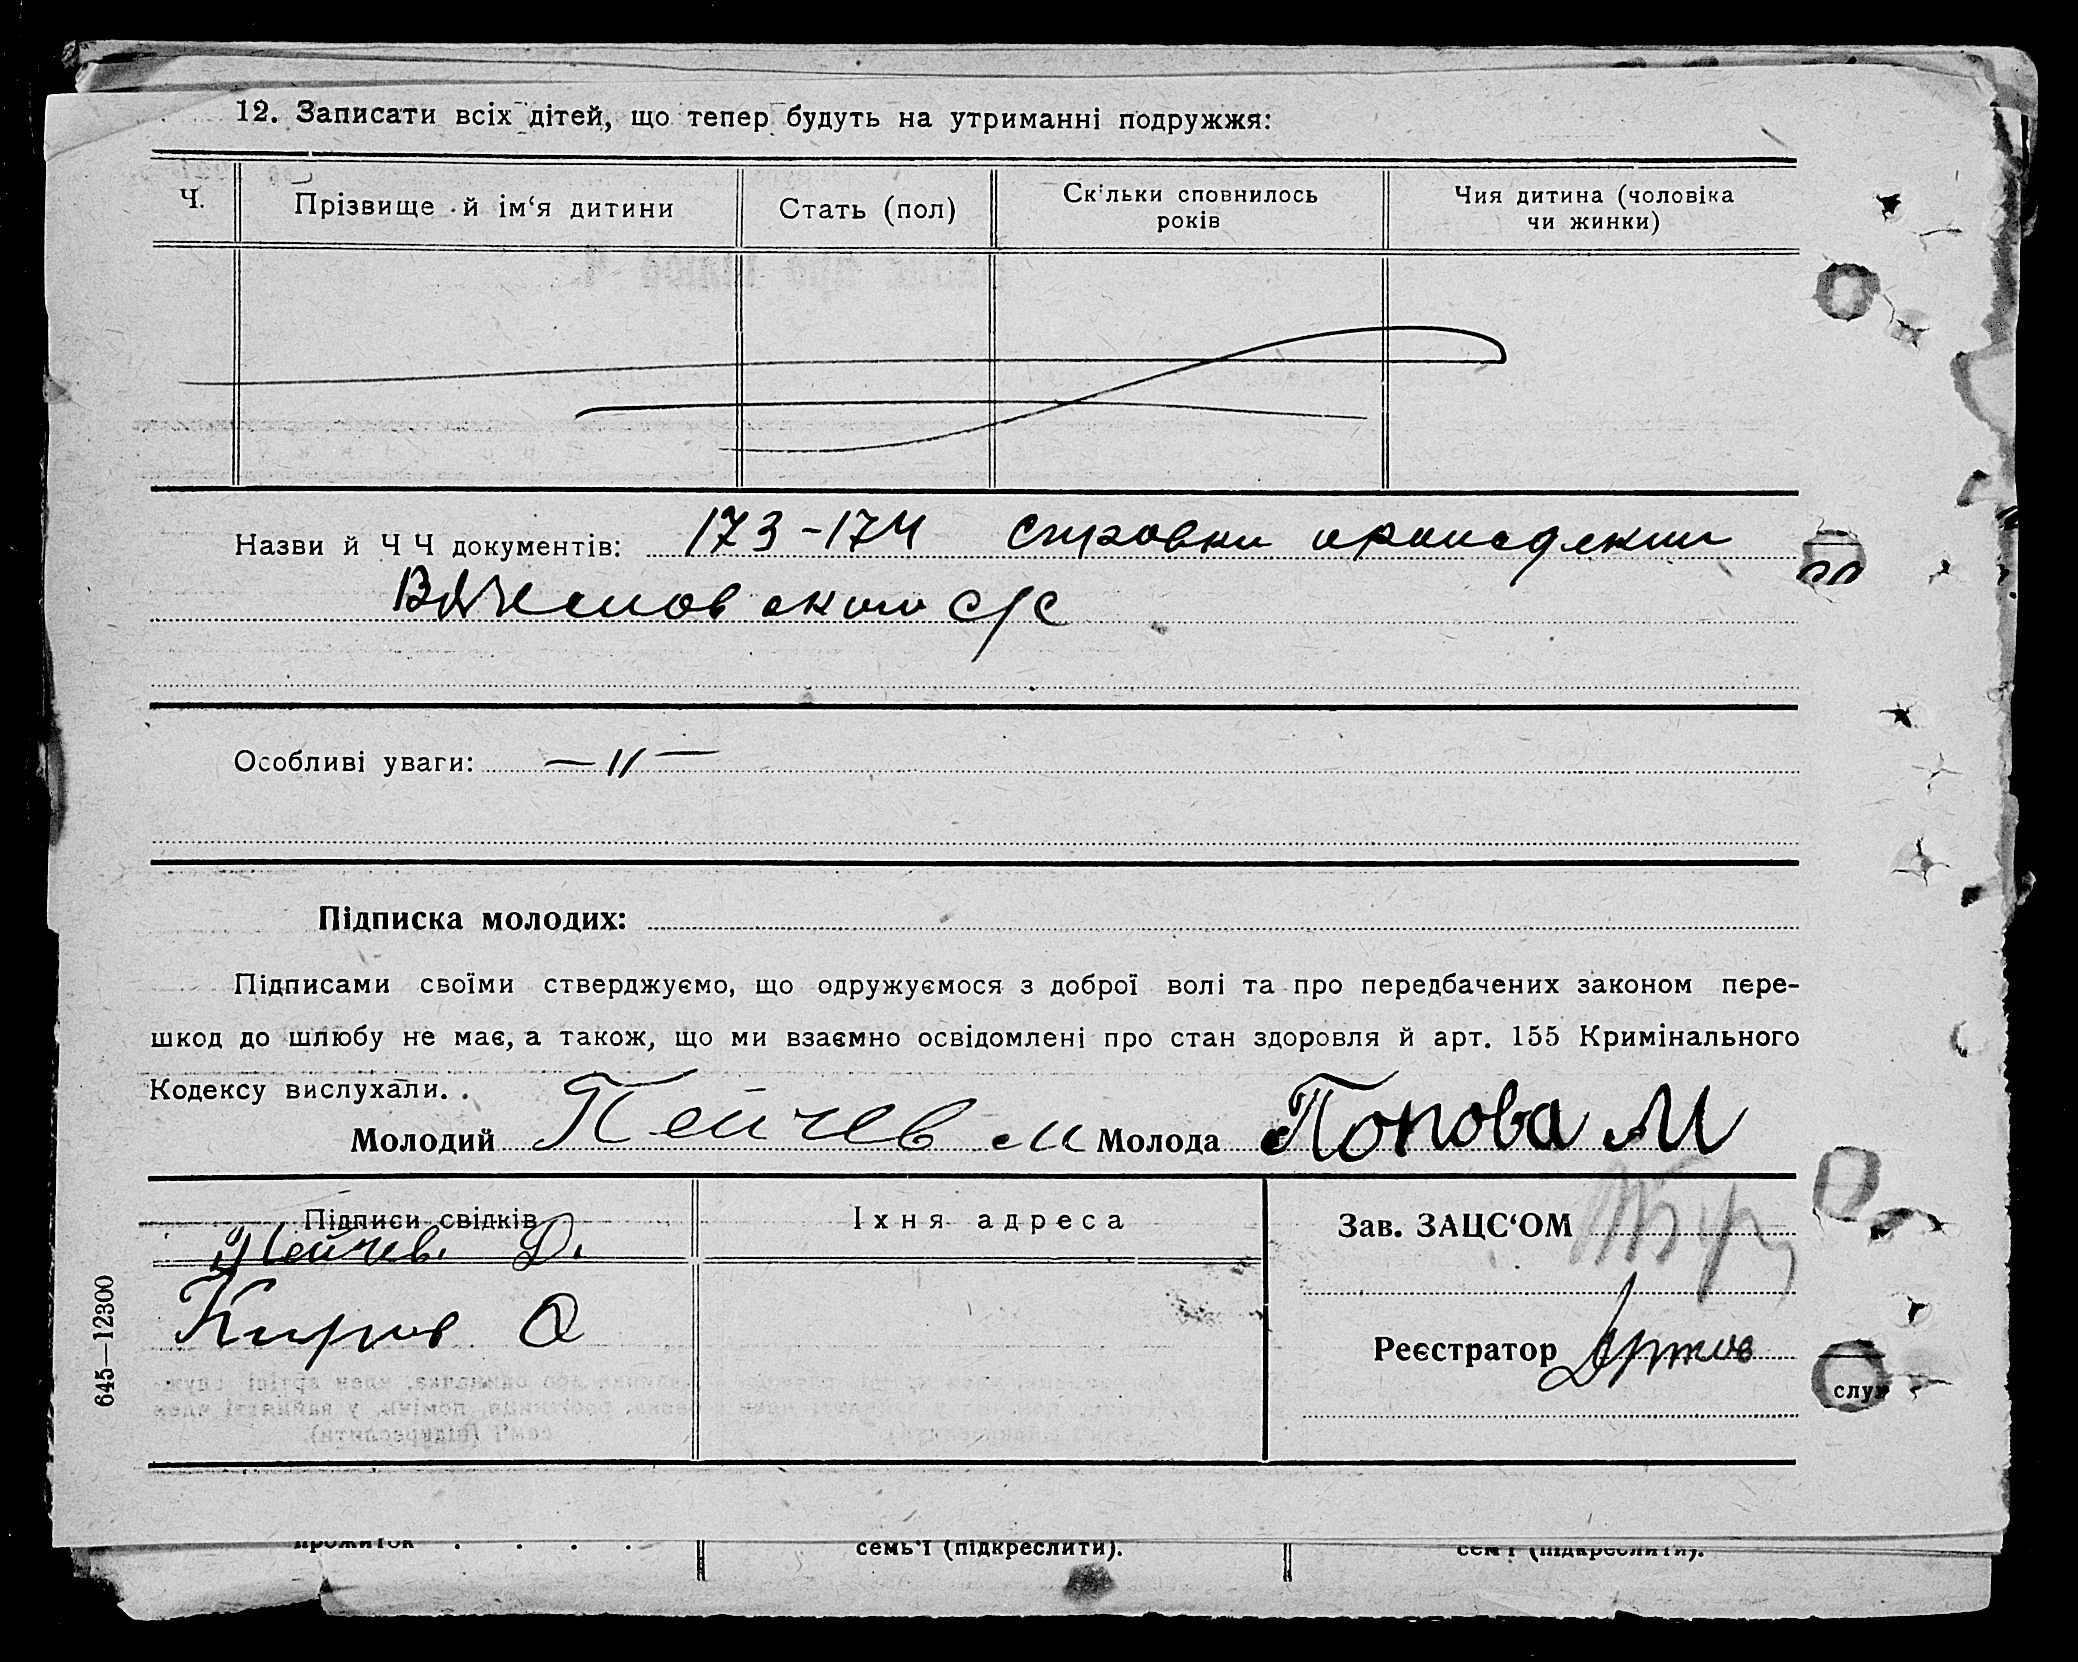 12. Записати всіх дітей, що тепер будуть на утриманні подружжя:
Ч.
Прізвище й ім‘я дитини
Стать (пол)
Скільки сповнилось
років
Чия дитина (чоловіка
чи жинки)
Назви й Ч Ч документів: 173-174 Справки
с/с
Особливі уваги: —„—
Підписка молодих:
Підписами своїми стверджуємо, що одружуємося з доброї волі та про передбачених законом пере-
шкод до шлюбу не має, а також, що ми взаємно освідомлені про стан здоровля й арт. 155 Кримінального
Кодексу вислухали.
Молодий Пейчев М Молода Попова М
Підписи свідків
Їхня адреса
Зав. ЗАЦС‘ОМ
Пейчев Д.
Киров О
Реєстратор
645—12300
слу
прожиток . . . .
семь‘ї (підкреслити).
сем‘ї (підкреслити).